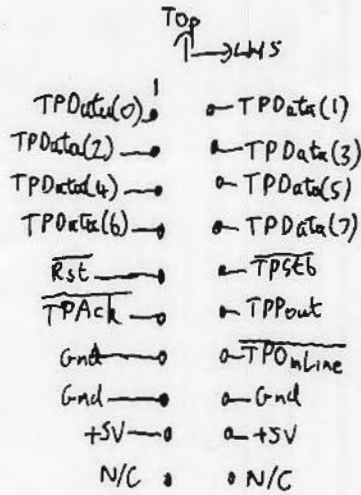 Top
LHS
1
TPData(0) TPData(1)
TPData(2) TPData(3)
TPData(4) TPData(5)
TPData(6) TPData(7)
Rst TPStb
TPAck TPPout
Gnd TPOnLine
Gnd Gnd
+5V +5V
N/C N/C